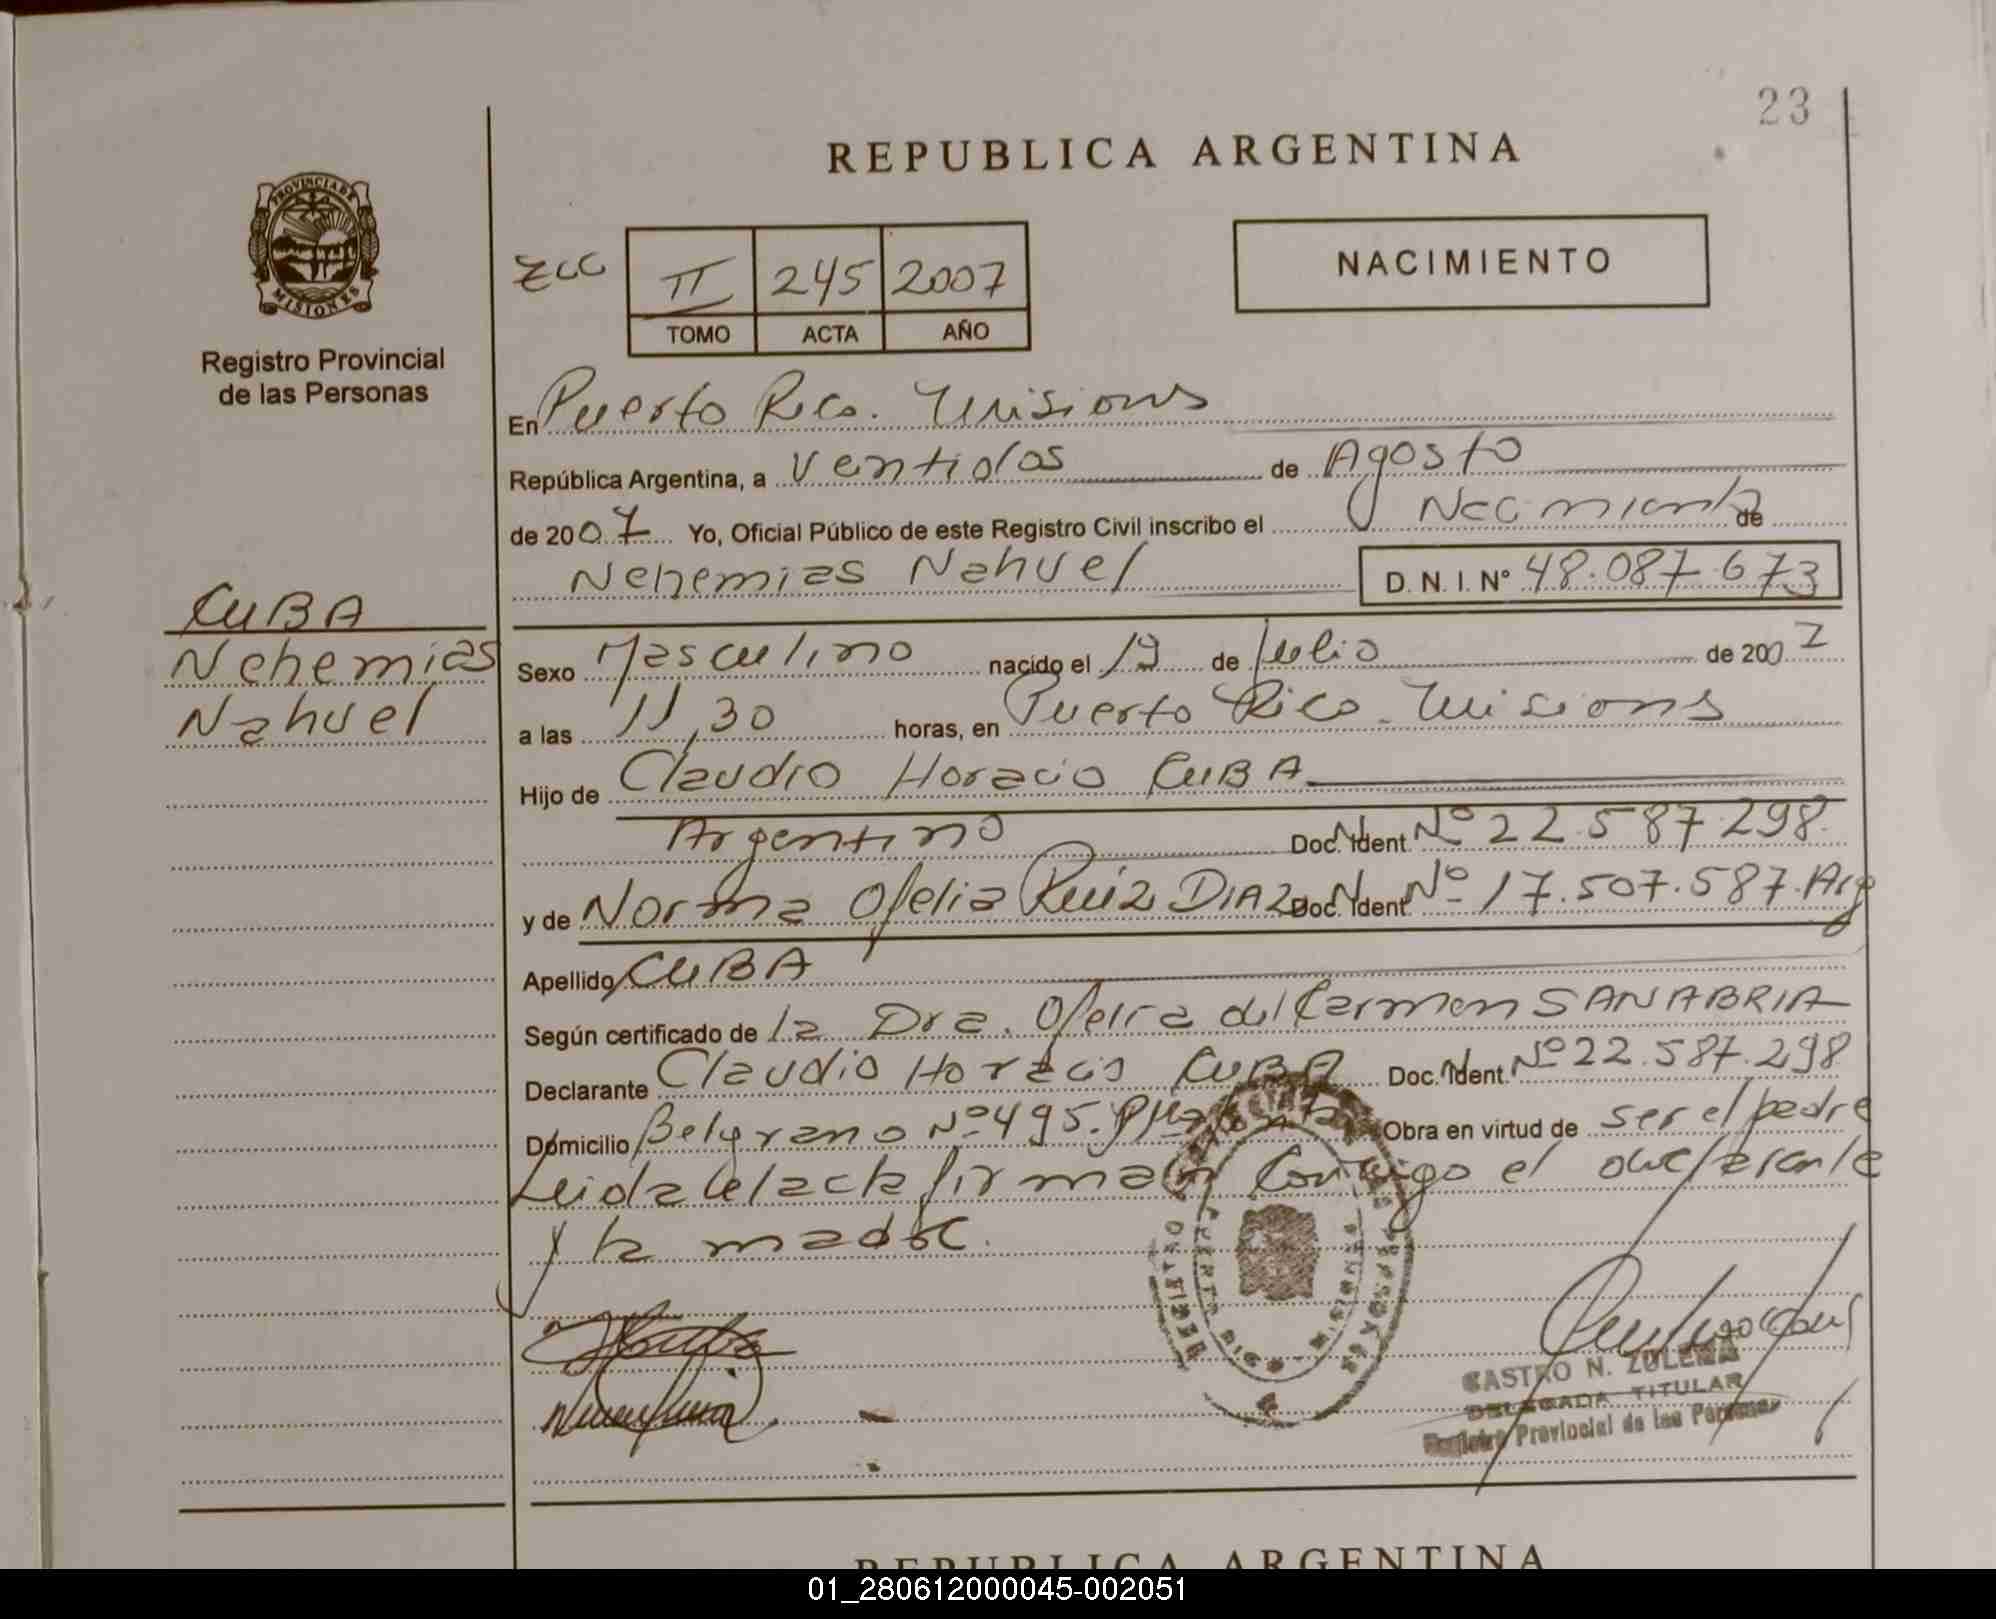 23
REPUBLICA ARGENTINA
PROVINCIA DE
MISIONES
Registro Provincial
de las Personas
II 245 2007
TOMO ACTA AÑO
NACIMIENTO
En Puerto Rico. Misiones
República Argentina, a Ventidos de Agosto
de 2007 Yo, Oficial Público de este Registro Civil inscribo el Nacimiento de
Nehemias Nahuel D. N. I. Nº 48.087.673
CUBA
Nehemias
Nahuel
Sexo Masculino nacido el 19 de Julio de 2007
a las 11,30 horas, en Puerto Rico. Misiones
Hijo de Claudio Horacio CUBA
Argentino Doc. Ident. Nº 22.587.298.
y de Norma Ofelia Ruiz DIAZ Doc. Ident. Nº 17.507.587. Arg
Apellido CUBA
Según certificado de la Dra. Ofelia del Carmen SANABRIA
Declarante Claudio Horacio CUBA Doc. Ident. Nº 22.587.298
Domicilio Belgrano Nº 495. Obra en virtud de ser el padre
Leida el acta firman conmigo el declarante
y la madre.
CASTRO N. ZULEMA
DELEGADA TITULAR
Registro Provincial de las Personas
REPUBLICA ARGENTINA
01_280612000045-002051